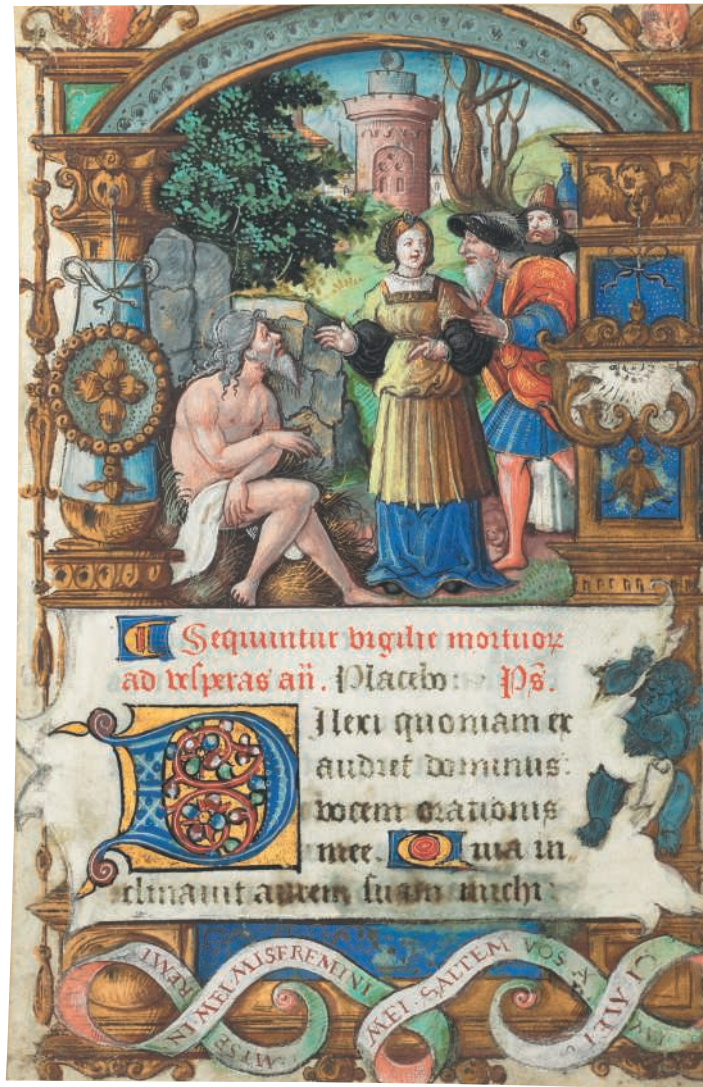 Sequuntur vigilie mortuoꝝ
ad vesperas añ. Placebo: Ps̄.
Dilexi quoniam ex
audiet dominus:
vocem orationis
mee. Quia in
clinavit aurem suam michi:
MISEREMINI MEI MISEREMINI MEI SALTEM VOS AMICI MEI